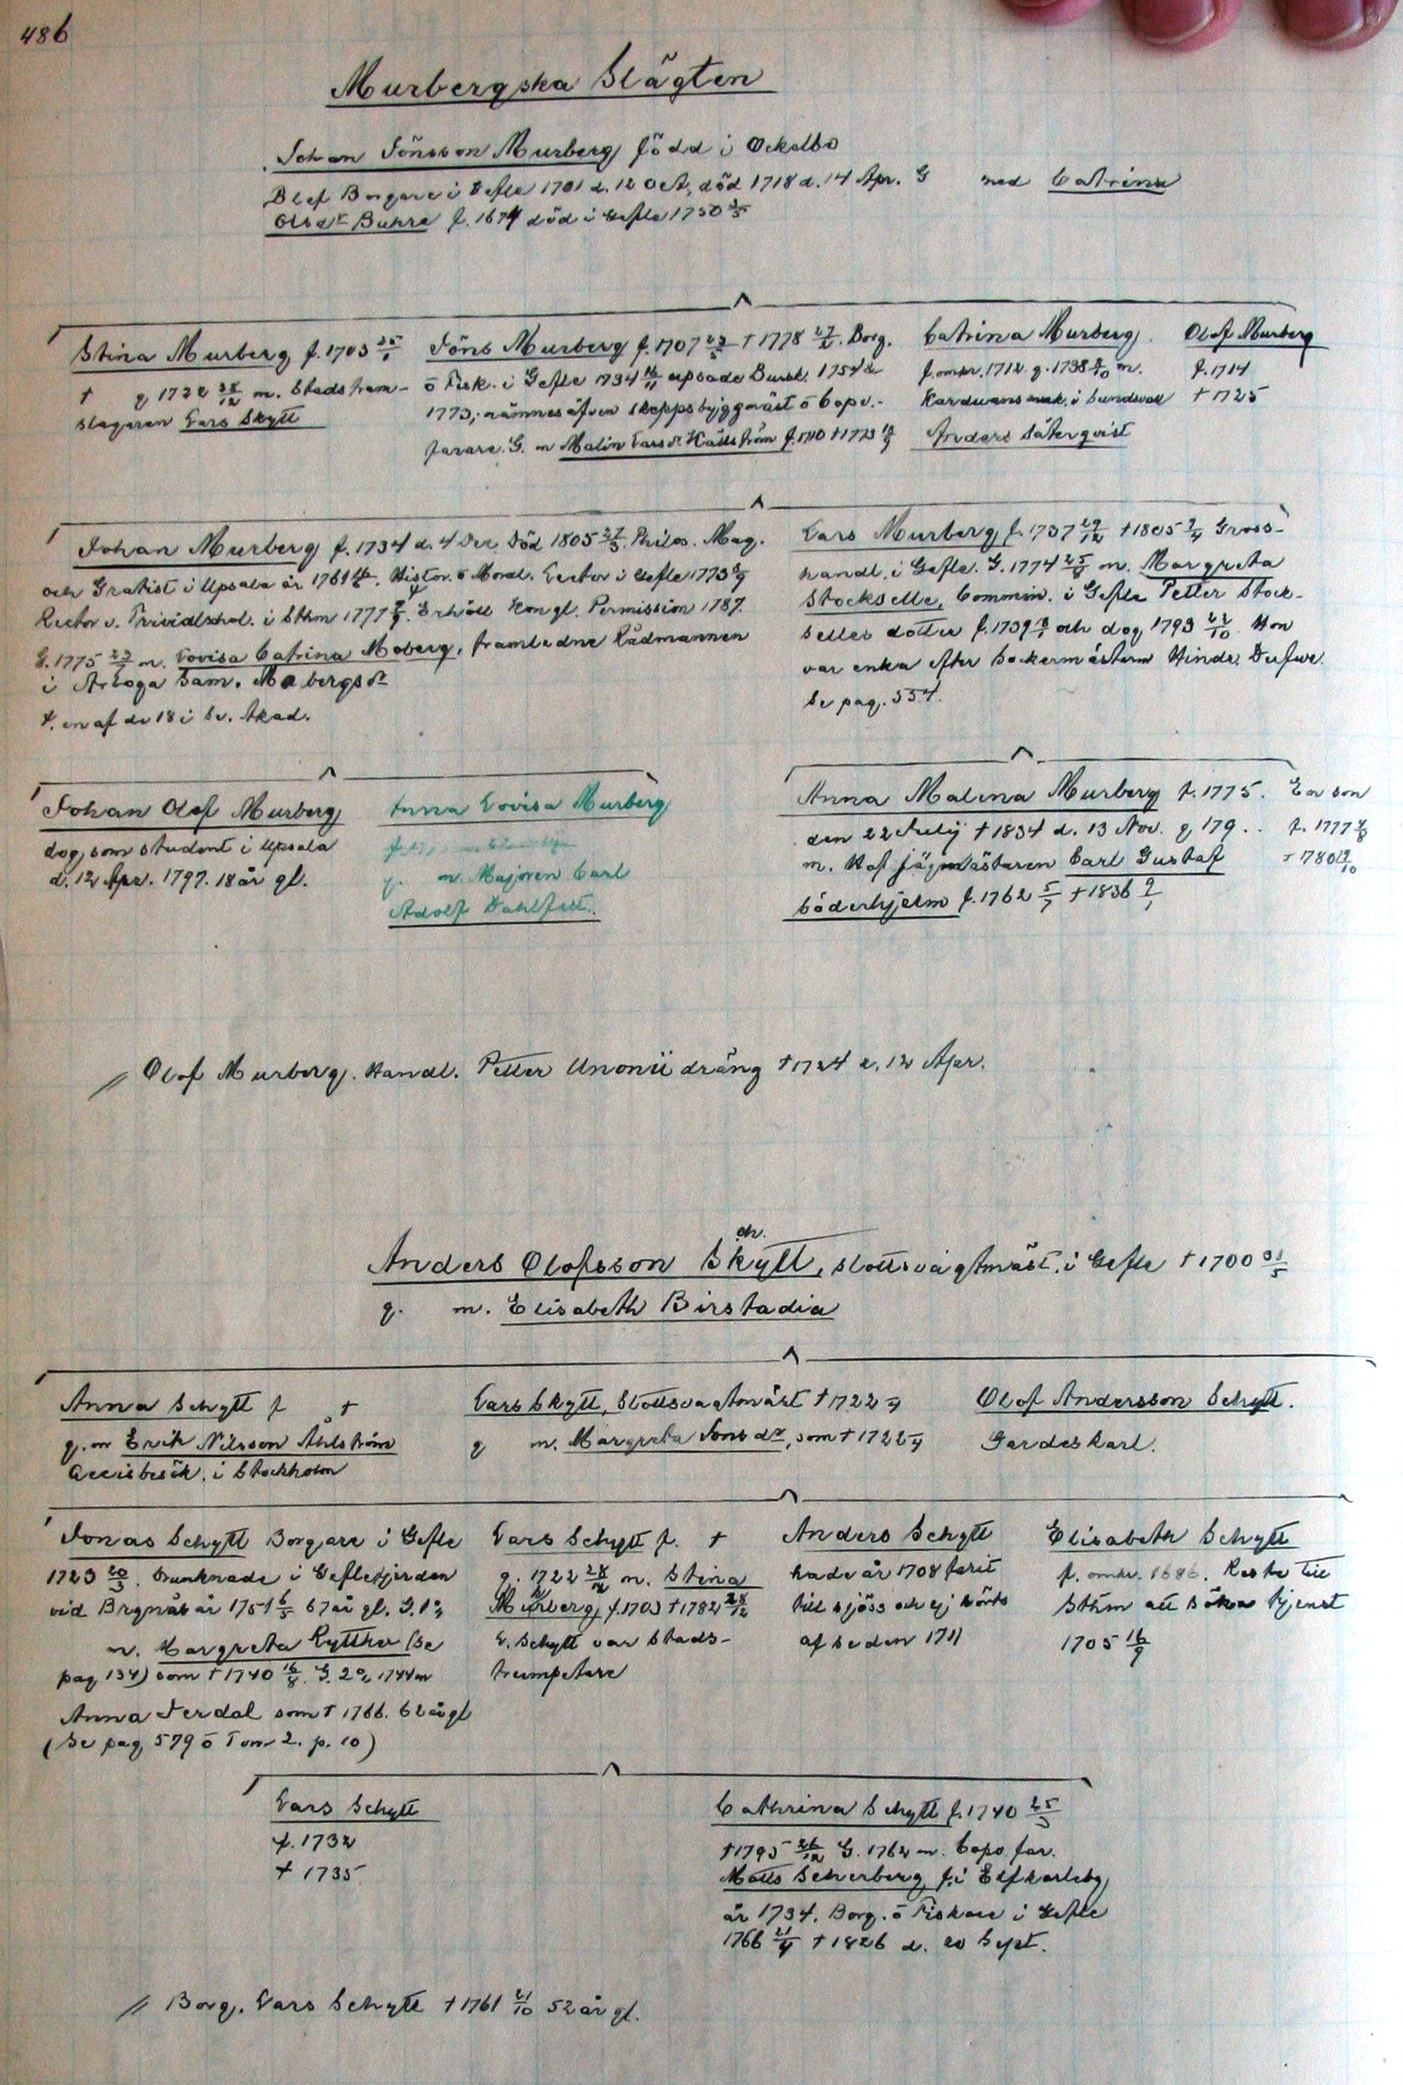 486
Murbergska Slägten
Johan Jönsson Murberg född i Ockelbo
Blef Borgare i Gefle 1701 d. 12 Oct, död 1718 d. 14 Apr. G med Catrina
Olsdr Buhre f. 1674 död i Gefle 1750
Stina Murberg f. 1703 25/1
† g 1722 28/12 m. Stadstrum-
slagaren Lars Skytt
Jöns Murberg f. 1707 † 1778 Borg.
o Fisk. i Gefle 1734 upsade Bursk. 1754 &
1773, nämnes äfven skeppsbyggmäst o Copv.-
farare. G. m Malin Larsdr Hällström f. 1710 † 1773
Catrina Murberg
f. omkr. 1712. g. 1738 8/10 m.
Karduansmak. i Sundsvall
Anders Säterqvist
Olof Murberg
f. 1714
† 1725
Johan Murberg f. 1734 d. 4 Dec. Död 1805 27/3. Philos. Mag.
och Gratist i Upsala år 1761. Histor. o Moral. Lector i Gefle 1773
Rector v. Trividlschol. i Sthm 1777. Erhöll Kongl. Permission 1787.
G. 1775 23/7 m. Lovisa Catrina Moberg, framledne Rådmannen
i Arboga Sam. Mobergs dr
‡. en af de 18 i Sv. Akad.
Lars Murberg f. 1737 29/12 † 1805 9/4 Gross-
handl. i Gefle. G. 1774 25/8 m. Margreta
Stockselle, Commin. i Gefle Petter Stock-
selles dotter f. 1739 och dog 1793 22/10 Hon
var enka efter Sockermästarn Hindr. Dufwe.
Se pag. 554.
Johan Olof Murberg
dog som student i Upsala
d. 12 Apr. 1797. 18 år gl.
Anna Lovisa Murberg
g. m. Majoren Carl
Adolf Dahlfelt.
Anna Malena Murberg f. 1775.
den 22 July † 1834 d. 13 Nov. g 179..
m. Hof jägmästaren Carl Gustaf
Söderhjelm f. 1762 5/7 † 1836 9/1
En son
f. 1777 4/8
† 1780 12/10
// Olof Murberg. Handl. Petter Unonii dräng † 1724 d. 12 Apr.
ch.
Anders Olofsson Skytt, slottsvagtmäst. i Gefle † 1700 31/5
g. m. Elisabeth Birstadia
Anna Schytt f †
g. m Erik Nilsson Åhlström
accisbesök. i Stockholm
Lars Skytt, Slottsvagtmäst † 1722
g m. Margreta Jonsdr, som † 1722
Olof Andersson Schytt.
Gardeskarl.
Jonas Schytt Borgare i Gefle
1723 20/3. Drunknade i Geflefjerden
vid Bregnäs år 1751 6/5 67 år gl. G. 1o
m. Margreta Rytther (Se
pag 134) som † 1740 16/8. G. 2o 1744 m
Anna Ferdal som † 1766. 62 år gl
(Se pag 579 o Tom 2. p. 10)
Lars Schytt f. †
g. 1722 28/12 m. Stina
Murberg, f. 1703 † 1782 28/12
L. Schytt var Stads-
trumpetare
Anders Schytt
hade år 1708 farit
till sjöss och ej hörts
af sedan 1711
Elisabeth Schytt
f. omkr. 1686. Reste till
Sthm att söka tjenst
1705 16/9
Lars Schytt
f. 1732
† 1735
Cathrina Schytt f. 1740 25/3
† 1795 26/12 G. 1762 m. Copv. far.
Matts Scherberg f. i Elfkarleby
år 1734. Borg. o Fiskare i Gefle
1766 21/4 † 1826 d. 20 Sept.
// Borg. Lars Schytt † 1761 21/10 52 år gl.